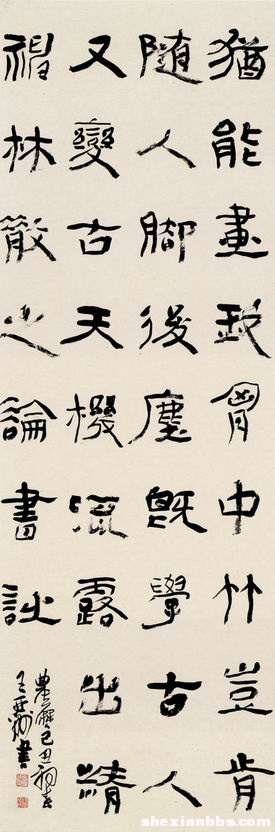 猶能畫我胷中竹豈肯
隨人腳後塵既學古人
又變古天機流露出精
神林散之論書詩
農曆己丑初春
書
shexianbbs.com